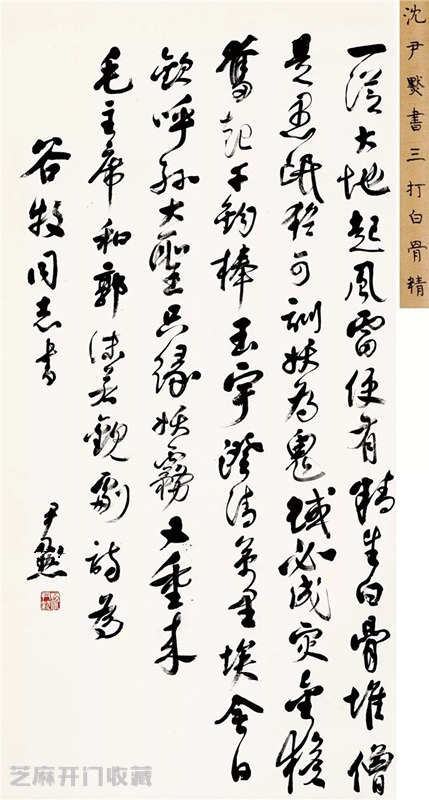 沈尹默書三打白骨精
一從大地起風雷便有精生白骨堆僧
是愚氓猶可訓妖為鬼蜮必成災金猴
奮起千鈞棒玉宇澄清萬里埃今日
歡呼孫大聖只緣妖霧又重來
毛主席和郭沫若觀劇詩為
谷牧同志書
尹默
芝麻开门收藏